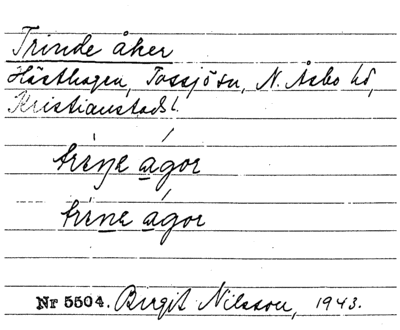 Trinde åker
Hästhagen, Tossjö sn, N. Åsbo hd,
Kristianstads l.
trine ågor
trine ågor
Nr 5504. Birgit Nilsson, 1943.